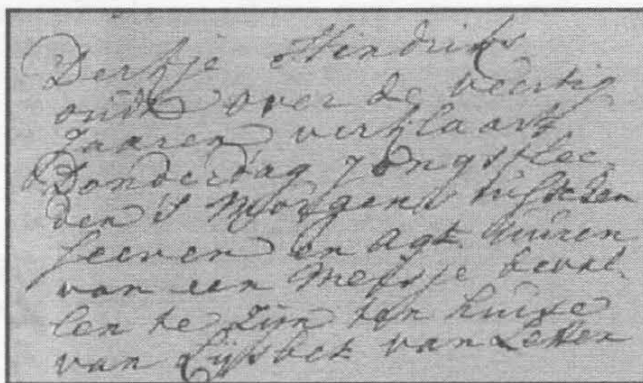 Derkje Hindriks
oudt over de veertig
Jaaren verklaart
Donderdag jongstlee-
den 's Morgens tusschen
seeven en Agt uuren
van een Meisje beval-
len te Zijn ten huise
van Lijsbet van Letten